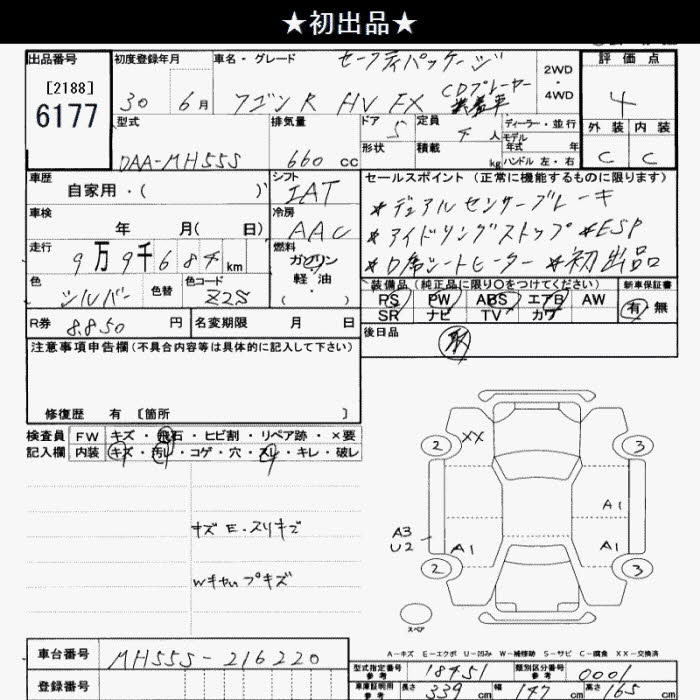 ★初出品★
出品番号 初度登録年月 車名・グレード セーフティパッケージ 2WD・4WD 評価点
[2188]
6177
30 6月 ワゴンR HV FX CDプレーヤー装着車 4
型式 排気量 ドア 5 定員 4人 ディーラー・並行 外装 内装
形状 積載 kg モデル年式 年 ハンドル 左・右
DAA-MH55S 660cc C C
車歴 自家用・( ) シフト IAT セールスポイント(正常に機能するものに限ります)
車検 年 月( 日) 冷房 AAC
*デュアルセンサーブレーキ
*アイドリングストップ *ESP
*D席シートヒーター *初出品
走行 9万9千684km 燃料 ガソリン 軽油
色 シルバー 色替 色コード Z2S
装備品(純正品に限り○をつけてください) 新車保証書
PS PW ABS エアB AW 有・無
SR ナビ TV カワ
R券 8,850円 名変期限 月 日 後日品 取
注意事項申告欄(不具合内容等は具体的に記入して下さい)
修復歴 有 [箇所 ]
検査員 FW キズ・飛石・ヒビ割・リペア跡・×要
記入欄 内装 キズ・汚レ・コゲ・穴・スレ・キレ・破レ
キズ E・スリキズ
Wキャップキズ
2 XX 3
A1
A3
U2 A1 A1
2 3
スペア
A-キズ E-エクボ U-凹み W-補修跡 S-サビ C-腐食 XX-交換済
車台番号 MH55S-216220
型式指定番号 参考 18451 類別区分番号 参考 0001
登録番号 車庫証明用 参考 長さ 339cm 幅 147cm 高さ 165cm